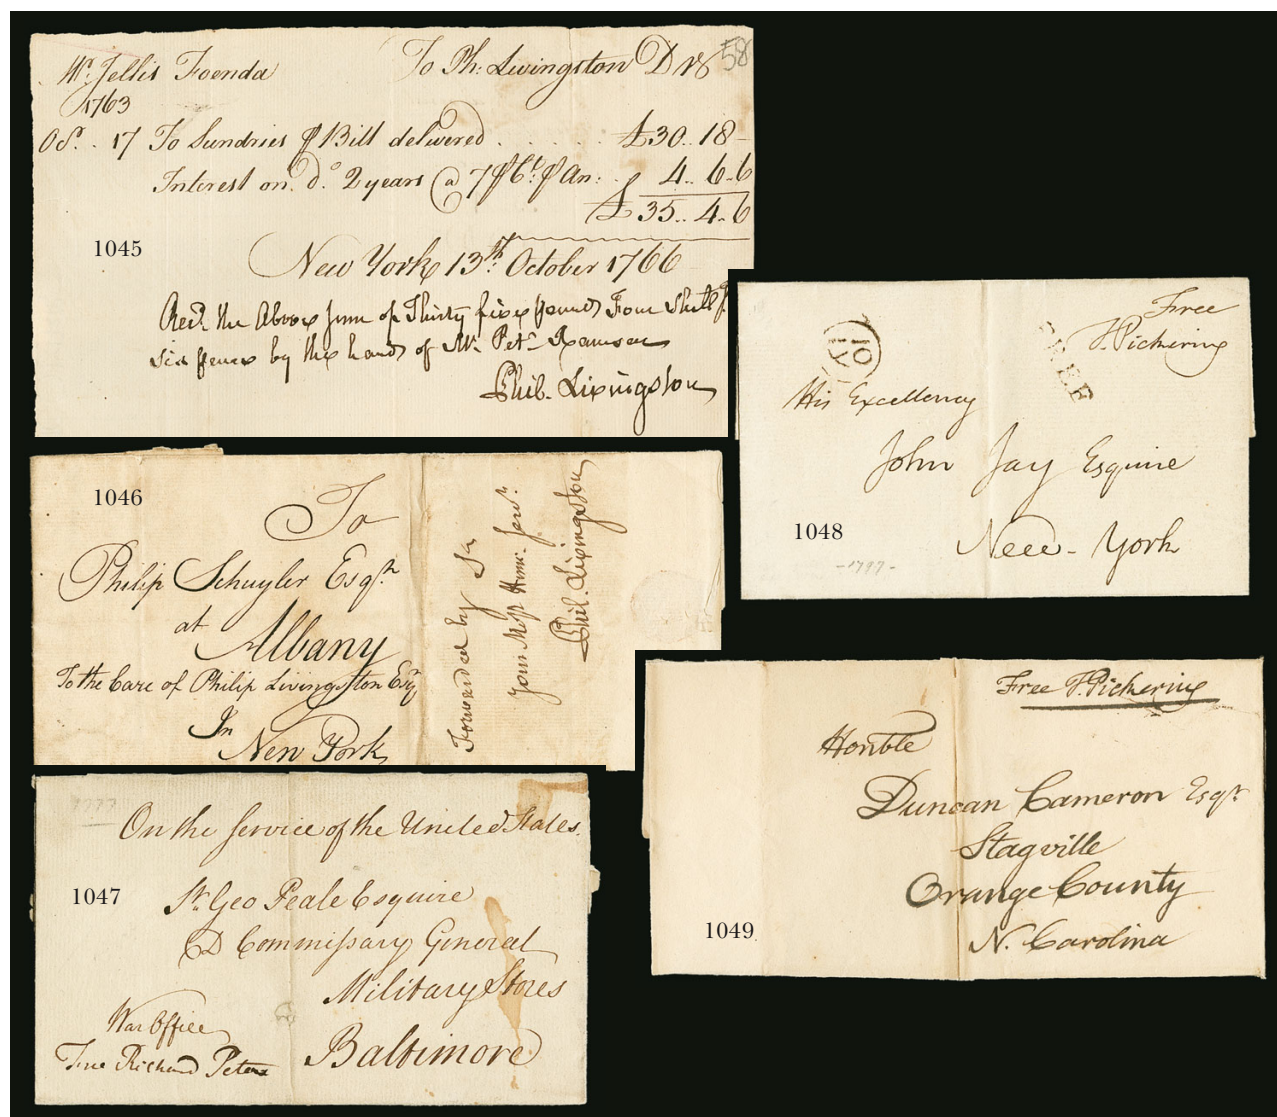 58
Mr. Jellis Foenda To Ph: Livingston Dr
1763
Octr. 17 To Sundries ⅌ Bill delivered . . . . . £30..18-
Interest on do. 2 years @ 7 ⅌ Ct. ⅌ An: . 4..6.6
£35..4.6
1045
New York 13th. October 1766
Recd. the Above sum of Thirty five pounds Four Shills
Six pence by the hands of Mr. Petr.
Phil. Livingston
1046
To
Philip Schuyler Esqr.
at
Albany
To the Care of Philip Livingston Esqr.
In
New York
Forwarded by Sr
Your Most Hume. Servt.
Phil. Livingston
1047
1777
On the Service of the United States.
St. Geo Peale Esquire
D Commissary General
Military Stores
War Office
Free Richard Peters
Baltimore
Free
T. Pickering
10
IY
FREE
His Excellency
John Jay Esquire
1048
New-York
-1797-
Free T. Pickering
Honble
Duncan Cameron Esqr.
Stagville
Orange County
1049
N. Carolina